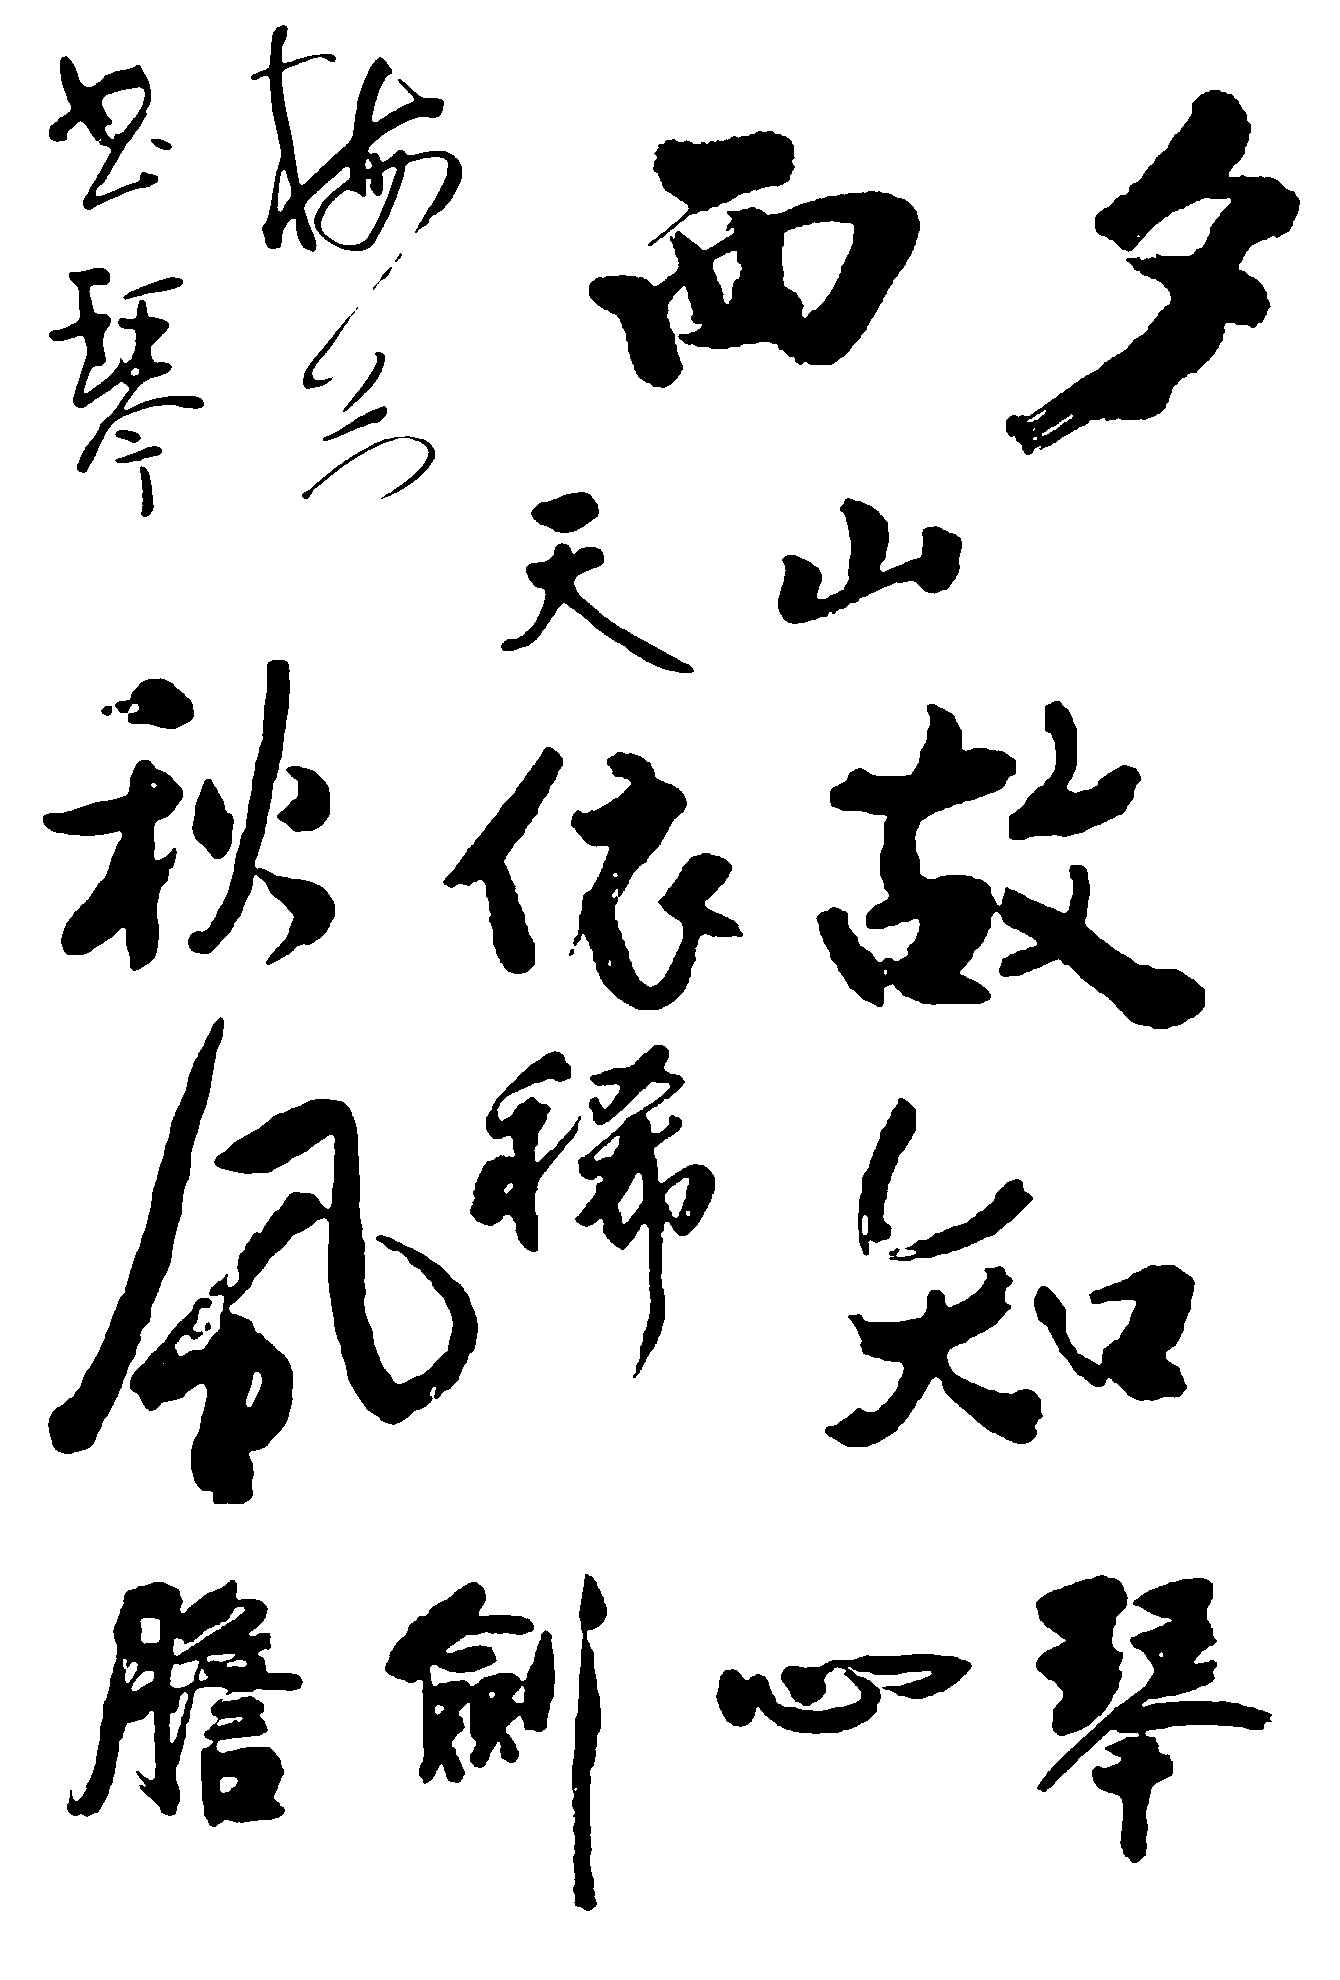 夕山故知
西天依稀
秋風
梅
书琴
琴心劍膽